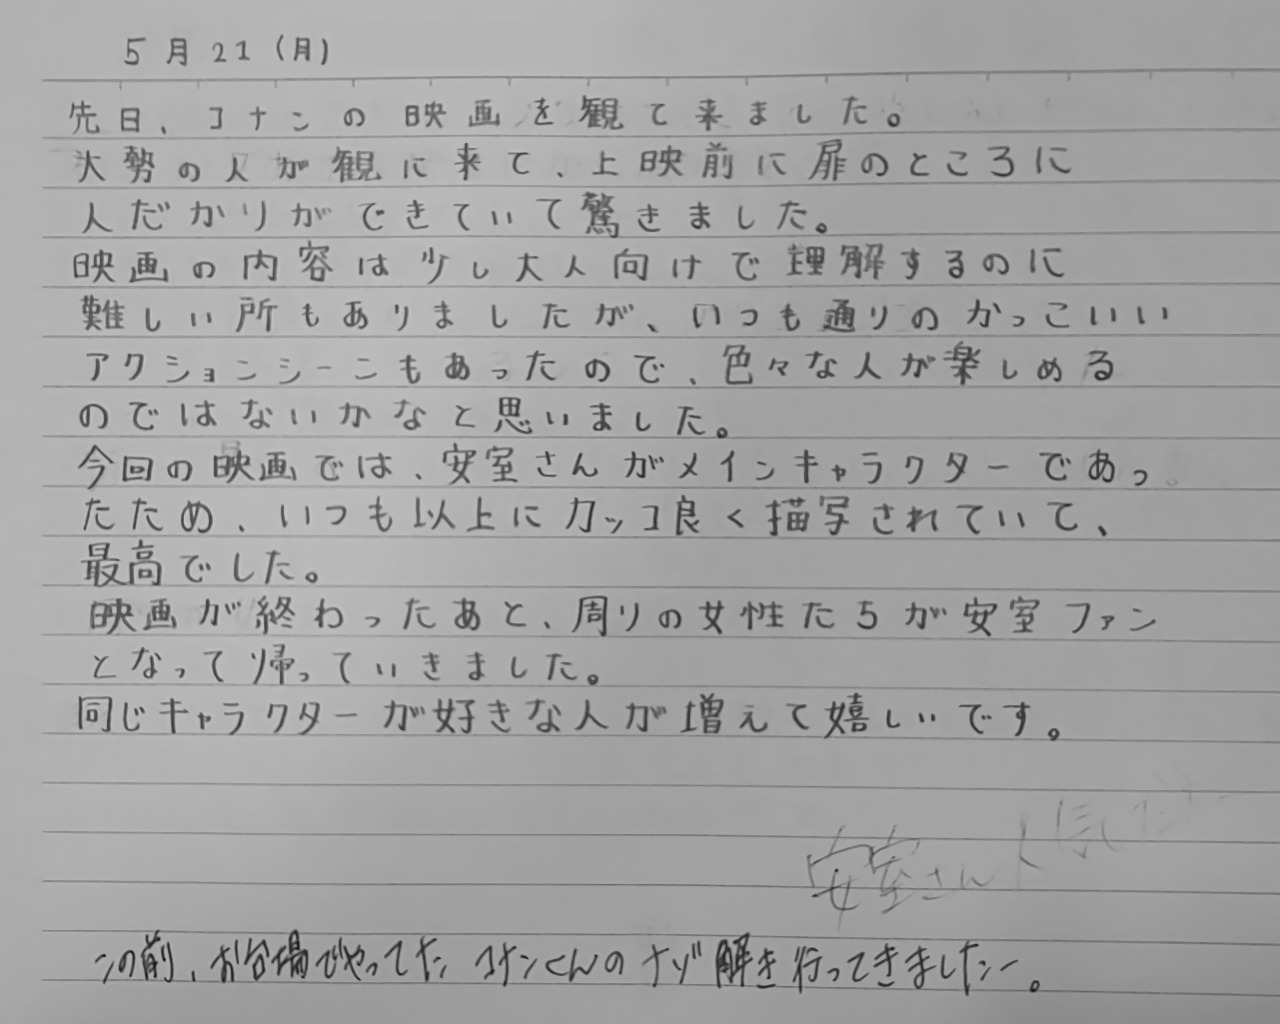 5月21(月)
先日、コナンの映画を観て来ました。
大勢の人が観に来て、上映前に扉のところに
人だかりができていて驚きました。
映画の内容は少し大人向けで理解するのに
難しい所もありましたが、いつも通りのかっこいい
アクションシーンもあったので、色々な人が楽しめる
のではないかなと思いました。
今回の映画では、安室さんがメインキャラクターであっ
たため、いつも以上にカッコ良く描写されていて、
最高でした。
映画が終わったあと、周りの女性たちが安室ファン
となって帰っていきました。
同じキャラクターが好きな人が増えて嬉しいです。
安室さん人気だ
この前、お台場でやってた コナンくんのナゾ解き行ってきましたー。